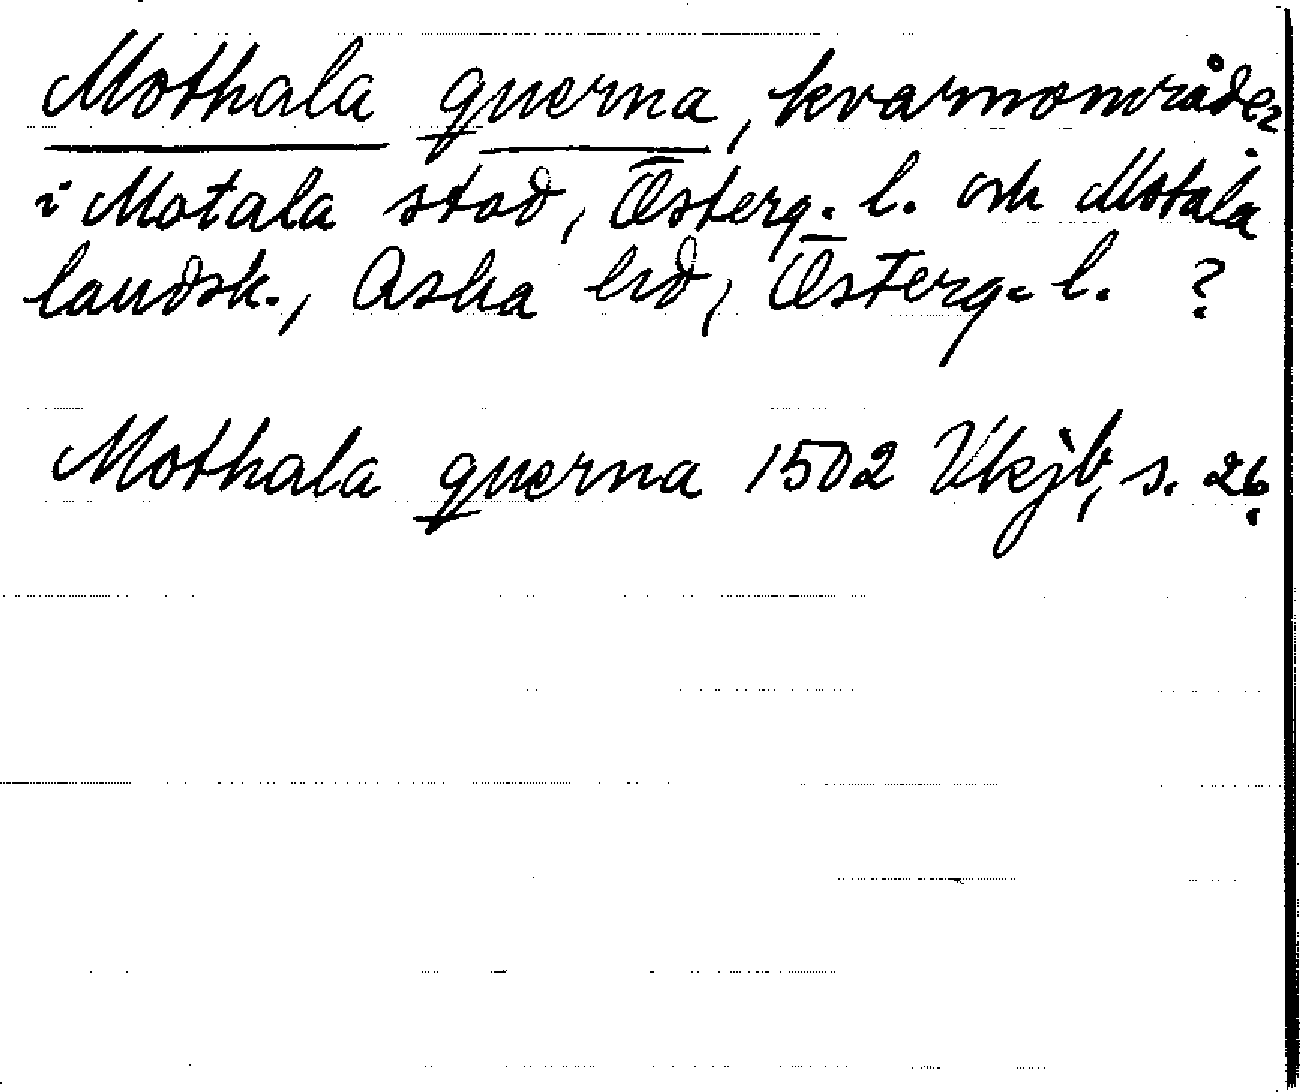 Mothala querna, kvarnområden
i Motala stad, Österg. l. och Motala
landsk., Aska hd, Österg. l. ?
Mothala querna 1502 Vkjb, s. 26.